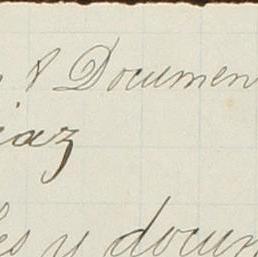 & Documen
iaz
es y docum